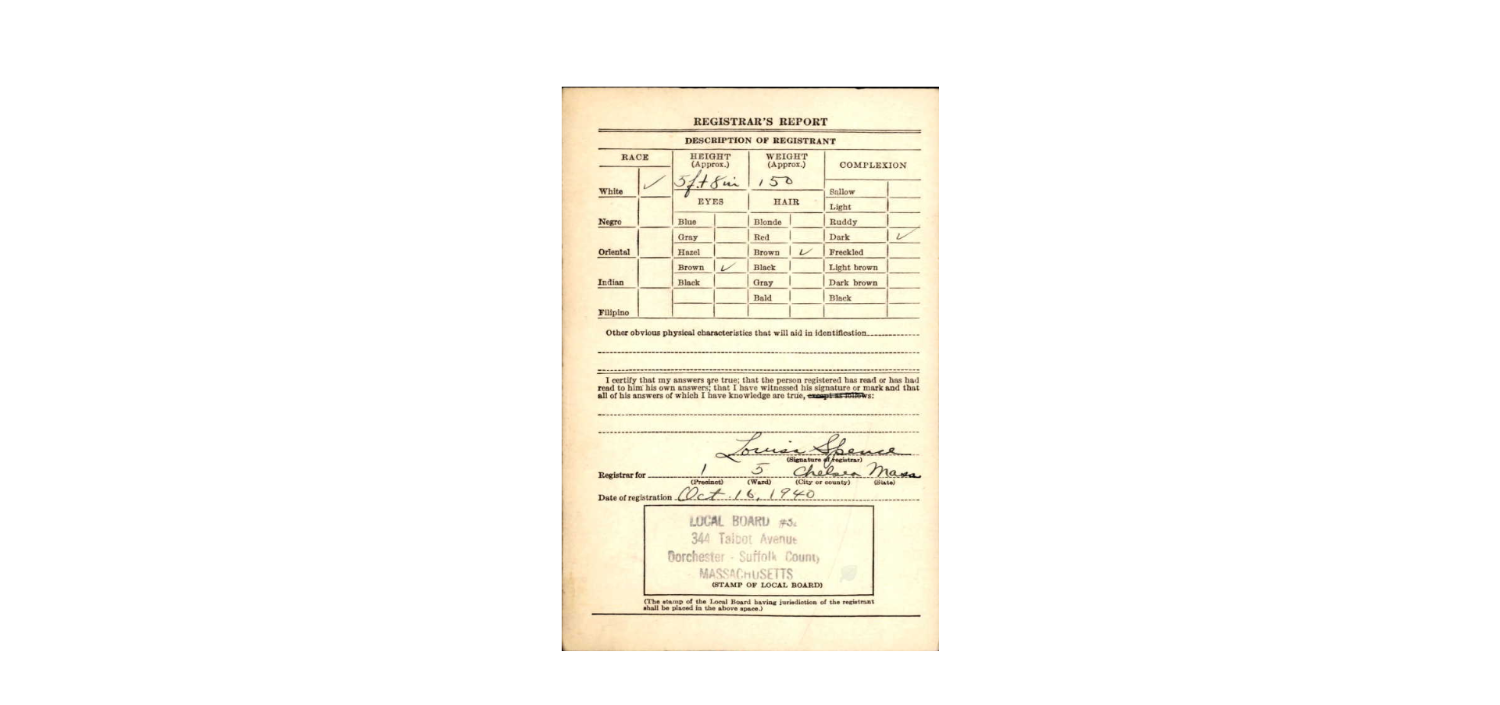 REGISTRAR'S REPORT
DESCRIPTION OF REGISTRANT
RACE
HEIGHT (Approx.)
WEIGHT (Approx.)
COMPLEXION
White ✓
5ft 8in
150
Sallow
EYES
HAIR
Light
Negro
Blue
Blonde
Ruddy
Gray
Red
Dark ✓
Oriental
Hazel
Brown ✓
Freckled
Brown ✓
Black
Light brown
Indian
Black
Gray
Dark brown
Bald
Black
Filipino
Other obvious physical characteristics that will aid in identification
I certify that my answers are true; that the person registered has read or has had
read to him his own answers; that I have witnessed his signature or mark and that
all of his answers of which I have knowledge are true, except as follows:
Louisa Spence
(Signature of registrar)
Registrar for 1 5 Chelsea Mass
(Precinct) (Ward) (City or county) (State)
Date of registration Oct. 16, 1940
LOCAL BOARD
344 Talbot Avenue
Dorchester - Suffolk County
MASSACHUSETTS
(STAMP OF LOCAL BOARD)
(The stamp of the Local Board having jurisdiction of the registrant
shall be placed in the above space.)